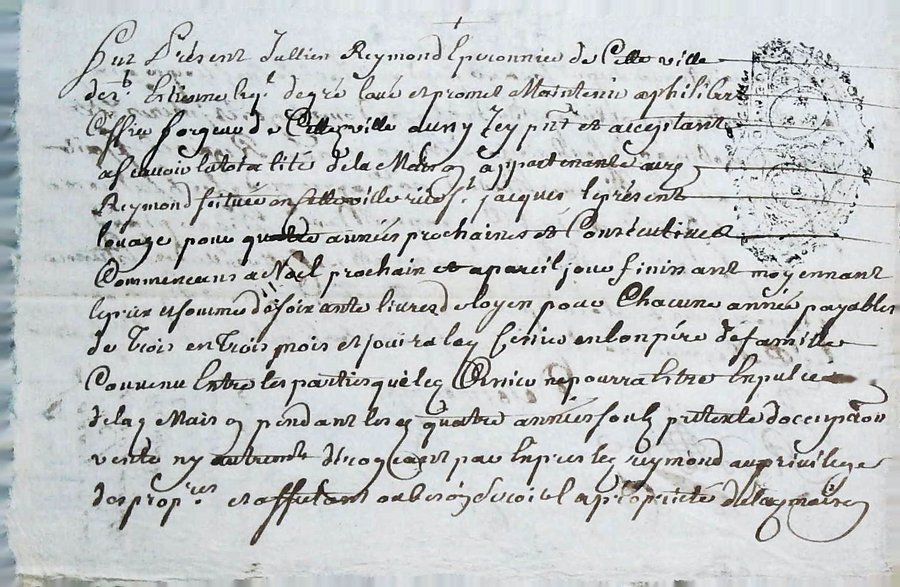 fut Présent Jullien Reymond Eperonnier de Cette ville
Lequel degré loue et promet Maintenir a philiber
forgeur de Cette ville au ny Icy pnt et acceptant
a scavoir la totalité de la Maison appartenante aud
Reymond scituée en Cette ville rue St. jacques le présent
louage pour quatre années prochaines et Consécutives
Commencens a Noel prochain et a pareil jour finissant moyennant
le prix et somme de soixante livres de loyer pour Chacune année payables
de Trois en Trois mois et jouira led en bon père de famille
Convenu Entre les parties que led ne pourra Estre Expulcé
de lad Maison pendant lesd quatre années soubz prétexte d'occupaon
vente ny autremt dérogeant par Exprès led reymond au privilège
des propres et affectant au besoin la propriété de lad maison